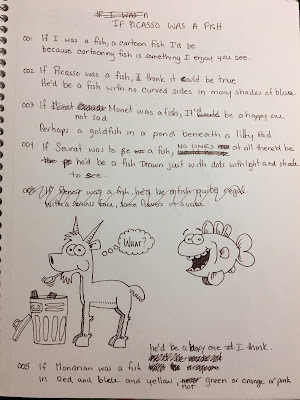 IF I WAS A
IF PICASSO WAS A FISH
001 If I was a fish, a cartoon fish I'd be
because cartooning fish is something I enjoy you see.
002 If Picasso was a fish, I think it could be true
He'd be a fish with no curved sides in many shades of blue.
003 If Monet was a fish, I'd be a happy one
not sad
Perhaps a goldfish in a pond beneath a lilly pad
004 If Seurat was to be a fish, NO LINES at all there'd be
he'd be a fish drawn just with dots with light and shade
to see.
If Renoir was a fish, he'd be a fish quite
with a serious face, some flowers
WHAT?
he'd be a boxy one I think.
005 If Mondrian was a fish
in red and blue and yellow, not green or orange or pink